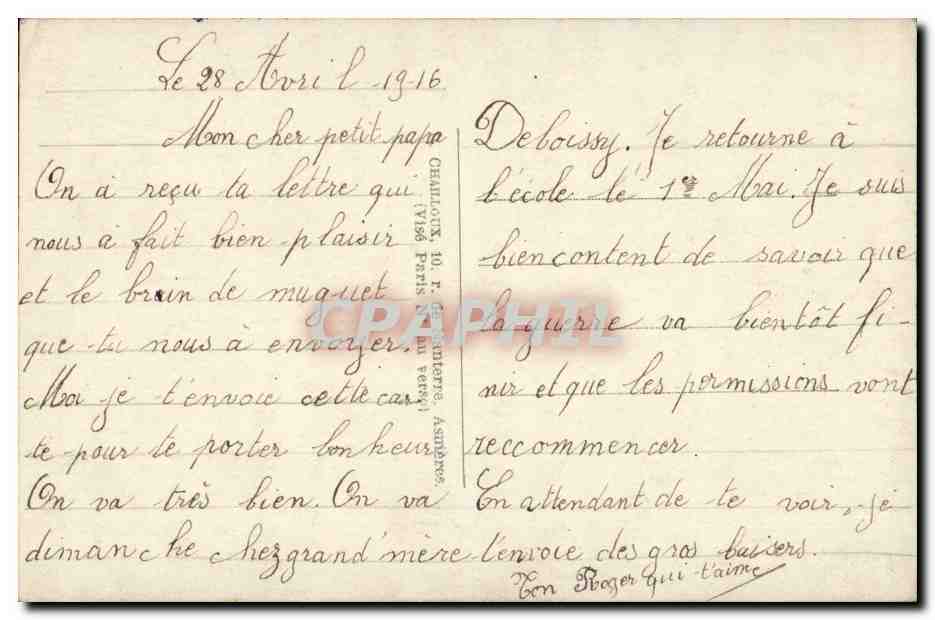 Le 28 Avril 1916
Mon cher petit papa
On a reçu ta lettre qui
nous a fait bien plaisir
et le brin de muguet
que tu nous à envoyer.
Moi je t'envoie cette car
te pour te porter bonheur
On va très bien. On va
dimanche chez grand'mère
Deboissy. Je retourne à
l'école lé 1er Mai. Je suis
bien content de savoir que
la guerre va bientôt fi-
nir et que les permissions vont
reccommencer.
En attendant de te voir, je
t'envoie des gros baisers.
Ton Roger qui t'aime
CHAILLOUX, 10, r. de Nanterre, Asnières.
(Visé Paris N° au verso)
CPAPHIL